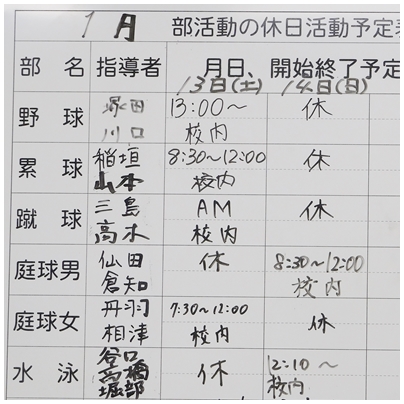 1月 部活動の休日活動予定表
部 名 指導者 月日、開始終了予定
13日(土) 14日(日)
野 球 塚田 13:00～ 休
川口 校内
累 球 稲垣 8:30～12:00 休
山本 校内
蹴 球 三島 AM 休
高木 校内
庭球男 仙田 休 8:30～12:00
倉知 校内
庭球女 丹羽 7:30～12:00 休
相津 校内
水 泳 谷口 休 12:10～
高橋 校内
堀部